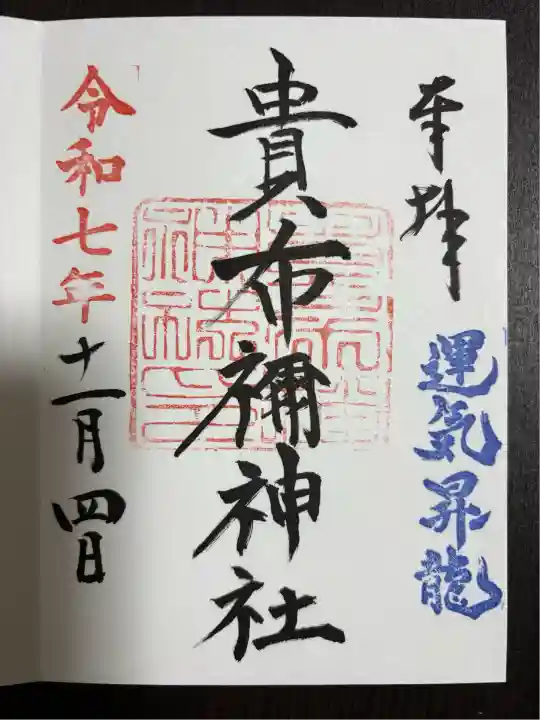 奉拝
運気昇龍
貴布禰神社
令和七年十一月四日